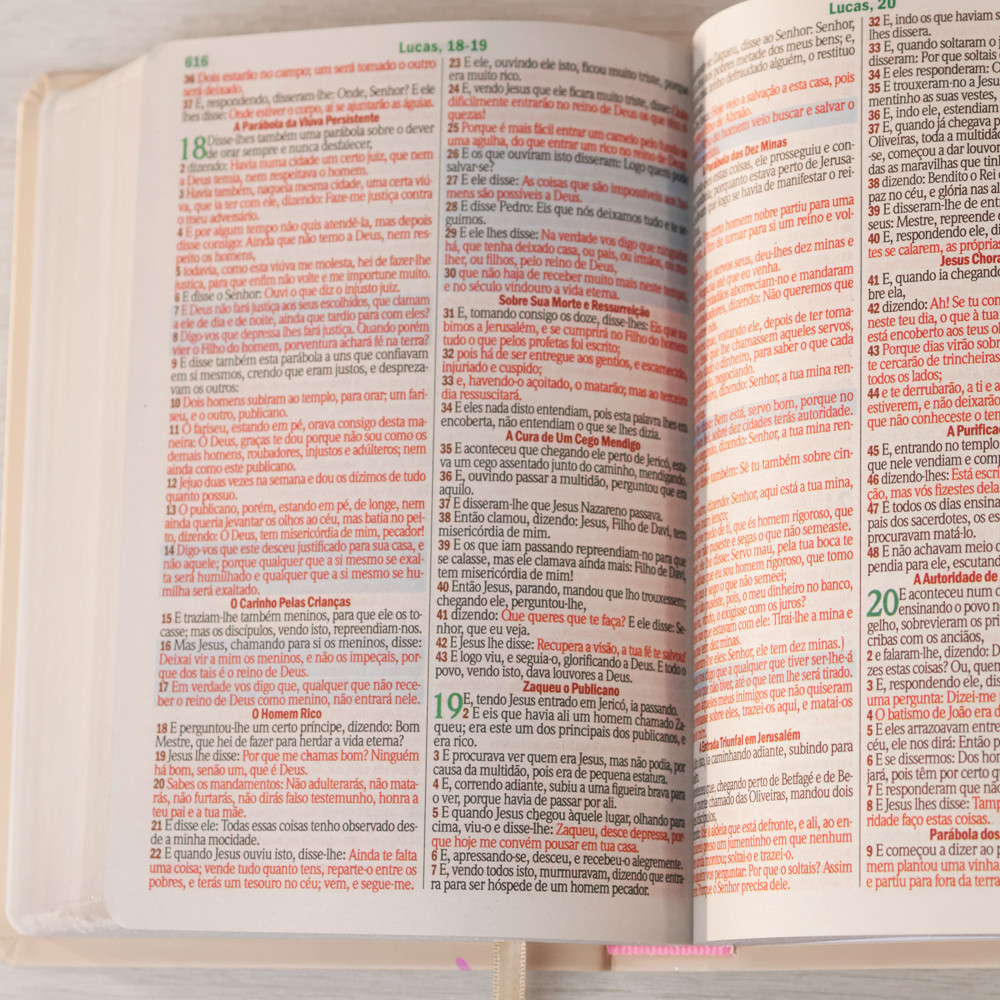 616
Lucas, 18-19
36 Dois estarão no campo; um será tomado o outro
será deixado.
37 E, respondendo, disseram-lhe: Onde, Senhor? E ele
lhes disse: Onde estiver o corpo, aí se ajuntarão as águias.
A Parábola da Viúva Persistente
18 Disse-lhes também uma parábola sobre o dever
de orar sempre e nunca desfalecer,
2 dizendo: Havia numa cidade um certo juiz, que nem
a Deus temia, nem respeitava o homem.
3 Havia também, naquela mesma cidade, uma certa viú-
va, que ia ter com ele, dizendo: Faze-me justiça contra
o meu adversário.
4 E por algum tempo não quis atendê-la, mas depois
disse consigo: Ainda que não temo a Deus, nem res-
peito os homens,
5 todavia, como esta viúva me molesta, hei de fazer-lhe
justiça, para que enfim não volte e me importune muito.
6 E disse o Senhor: Ouvi o que diz o injusto juiz.
7 E Deus não fará justiça aos seus escolhidos, que clamam
a ele de dia e de noite, ainda que tardio para com eles?
8 Digo-vos que depressa lhes fará justiça. Quando porém
vier o Filho do homem, porventura achará fé na terra?
9 E disse também esta parábola a uns que confiavam
em si mesmos, crendo que eram justos, e despreza-
vam os outros:
10 Dois homens subiram ao templo, para orar; um fari-
seu, e o outro, publicano.
11 O fariseu, estando em pé, orava consigo desta ma-
neira: Ó Deus, graças te dou porque não sou como os
demais homens, roubadores, injustos e adúlteros; nem
ainda como este publicano.
12 Jejuo duas vezes na semana e dou os dízimos de tudo
quanto possuo.
13 O publicano, porém, estando em pé, de longe, nem
ainda queria levantar os olhos ao céu, mas batia no pei-
to, dizendo: Ó Deus, tem misericórdia de mim, pecador!
14 Digo-vos que este desceu justificado para sua casa, e
não aquele; porque qualquer que a si mesmo se exal-
ta será humilhado e qualquer que a si mesmo se hu-
milha será exaltado.
O Carinho Pelas Crianças
15 E traziam-lhe também meninos, para que ele os to-
casse; mas os discípulos, vendo isto, repreendiam-nos.
16 Mas Jesus, chamando para si os meninos, disse:
Deixai vir a mim os meninos, e não os impeçais, por-
que dos tais é o reino de Deus.
17 Em verdade vos digo que, qualquer que não rece-
ber o reino de Deus como menino, não entrará nele.
O Homem Rico
18 E perguntou-lhe um certo príncipe, dizendo: Bom
Mestre, que hei de fazer para herdar a vida eterna?
19 Jesus lhe disse: Por que me chamas bom? Ninguém
há bom, senão um, que é Deus.
20 Sabes os mandamentos: Não adulterarás, não mata-
rás, não furtarás, não dirás falso testemunho, honra a
teu pai e a tua mãe.
21 E disse ele: Todas essas coisas tenho observado des-
de a minha mocidade.
22 E quando Jesus ouviu isto, disse-lhe: Ainda te falta
uma coisa; vende tudo quanto tens, reparte-o entre os
pobres, e terás um tesouro no céu; vem, e segue-me.
23 E ele, ouvindo ele isto, ficou muito triste, porque
era muito rico.
24 E, vendo Jesus que ele ficara muito triste, disse: Quão
dificilmente entrarão no reino de Deus os que têm ri-
quezas!
25 Porque é mais fácil entrar um camelo pelo fundo de
uma agulha, do que entrar um rico no reino de Deus.
26 E os que ouviram isto disseram: Logo quem pode
salvar-se?
27 E ele disse: As coisas que são impossíveis aos ho-
mens são possíveis a Deus.
28 E disse Pedro: Eis que nós deixamos tudo e te se-
guimos.
29 E ele lhes disse: Na verdade vos digo que ninguém
há, que tenha deixado casa, ou pais, ou irmãos, ou mu-
lher, ou filhos, pelo reino de Deus,
30 que não haja de receber muito mais neste tempo,
e no século vindouro a vida eterna.
Sobre Sua Morte e Ressurreição
31 E, tomando consigo os doze, disse-lhes: Eis que su-
bimos a Jerusalém, e se cumprirá no Filho do homem
tudo o que pelos profetas foi escrito;
32 pois há de ser entregue aos gentios, e escarnecido,
injuriado e cuspido;
33 e, havendo-o açoitado, o matarão; mas ao terceiro
dia ressuscitará.
34 E eles nada disto entendiam, pois esta palavra lhes era
encoberta, não entendiam o que se lhes dizia.
A Cura de Um Cego Mendigo
35 E aconteceu que chegando ele perto de Jericó, esta-
va um cego assentado junto do caminho, mendigando.
36 E, ouvindo passar a multidão, perguntou que era
aquilo.
37 E disseram-lhe que Jesus Nazareno passava.
38 Então clamou, dizendo: Jesus, Filho de Davi, tem
misericórdia de mim.
39 E os que iam passando repreendiam-no para que
se calasse, mas ele clamava ainda mais: Filho de Davi,
tem misericórdia de mim!
40 Então Jesus, parando, mandou que lho trouxessem;
chegando ele, perguntou-lhe,
41 dizendo: Que queres que te faça? E ele disse: Se-
nhor, que eu veja.
42 E Jesus lhe disse: Recupera a visão, a tua fé te salvou!
43 E logo viu, e seguia-o, glorificando a Deus. E todo o
povo, vendo isto, dava louvores a Deus.
Zaqueu o Publicano
19 E, tendo Jesus entrado em Jericó, ia passando.
2 E eis que havia ali um homem chamado Za-
queu; era este um dos principais dos publicanos, e
era rico.
3 E procurava ver quem era Jesus, mas não podia, por
causa da multidão, pois era de pequena estatura.
4 E, correndo adiante, subiu a uma figueira brava para
o ver, porque havia de passar por ali.
5 E quando Jesus chegou àquele lugar, olhando para
cima, viu-o e disse-lhe: Zaqueu, desce depressa, por-
que hoje me convém pousar em tua casa.
6 E, apressando-se, desceu, e recebeu-o alegremente.
7 E, vendo todos isto, murmuravam, dizendo que entra-
ra para ser hóspede de um homem pecador.
Lucas, 20
disse ao Senhor: Senhor,
pobres metade dos meus bens; e,
defraudado alguém, o restituo
Hoje veio a salvação a esta casa, pois
de Abraão.
do homem veio buscar e salvar o
Parábola das Dez Minas
estas coisas, ele prosseguiu e con-
porquanto estava perto de Jerusa-
que logo se havia de manifestar o rei-
certo homem nobre partiu para uma
de tomar para si um reino e vol-
servos seus, deu-lhes dez minas e
até que eu venha.
aborreciam-no e mandaram
dizendo: Não queremos que
voltando ele, depois de ter toma-
lhe chamassem aqueles servos,
o dinheiro, para saber o que cada
negociando.
dizendo: Senhor, a tua mina ren-
Bem está, servo bom, porque no
sobre dez cidades terás autoridade.
dizendo: Senhor, a tua mina ren-
também: Sê tu também sobre cin-
dizendo: Senhor, aqui está a tua mina,
lenço;
de ti, que és homem rigoroso, que
puseste e segas o que não semeaste.
disse: Servo mau, pela tua boca te
eu sou homem rigoroso, que tomo
sego o que não semeei;
pois, o meu dinheiro no banco,
o exigisse com os juros?
estavam com ele: Tirai-lhe a mina e
dez minas.
ele: Senhor, ele tem dez minas.)
que a qualquer que tiver ser-lhe-á
não tiver, até o que tem lhe será tirado.
meus inimigos que não quiseram
sobre eles, trazei-os aqui, e matai-os
Entrada Triunfal em Jerusalém
ia caminhando adiante, subindo para
que, chegando perto de Betfagé e de Be-
monte chamado das Oliveiras, mandou dois
aldeia que está defronte, e ali, ao en-
preso um jumentinho em que nenhum
montou; soltai-o e trazei-o.
vos perguntar: Por que o soltais? Assim
Porque o Senhor precisa dele.
32 E, indo os que haviam s
lhes dissera.
33 E, quando soltaram o j
disseram: Por que soltais
34 E eles responderam: O
35 E trouxeram-no a Jesu
mentinho as suas vestes,
36 E, indo ele, estendiam
37 E, quando já chegava p
Oliveiras, toda a multidã
-se, começou a dar louvor
das as maravilhas que tinh
38 dizendo: Bendito o Rei
paz no céu, e glória nas al
39 E disseram-lhe de entr
seus: Mestre, repreende
40 E, respondendo ele, di
tes se calarem, as próprias
Jesus Chora
41 E, quando ia chegando
bre ela,
42 dizendo: Ah! Se tu con
neste teu dia, o que à tua
está encoberto aos teus o
43 Porque dias virão sobr
te cercarão de trincheiras
todos os lados;
44 e te derrubarão, a ti e a
estiverem, e não deixarão
que não conheceste o tem
A Purificaç
45 E, entrando no templo
que nele vendiam e comp
46 dizendo-lhes: Está escri
ção, mas vós fizestes dela
47 E todos os dias ensina
pais dos sacerdotes, os es
procuravam matá-lo.
48 E não achavam meio d
pendia para ele, escutand
A Autoridade de
20 E aconteceu num d
ensinando o povo n
gelho, sobrevieram os pri
cribas com os anciãos,
2 e falaram-lhe, dizendo: D
zes estas coisas? Ou, quen
3 E, respondendo ele, dis
uma pergunta: Dizei-me
4 O batismo de João era d
5 E eles arrazoavam entre
céu, ele nos dirá: Então p
6 E se dissermos: Dos hor
jará, pois têm por certo q
7 E responderam que não
8 E Jesus lhes disse: Tamp
ridade faço estas coisas.
Parábola dos
9 E começou a dizer ao p
mem plantou uma vinha
e partiu para fora da terra